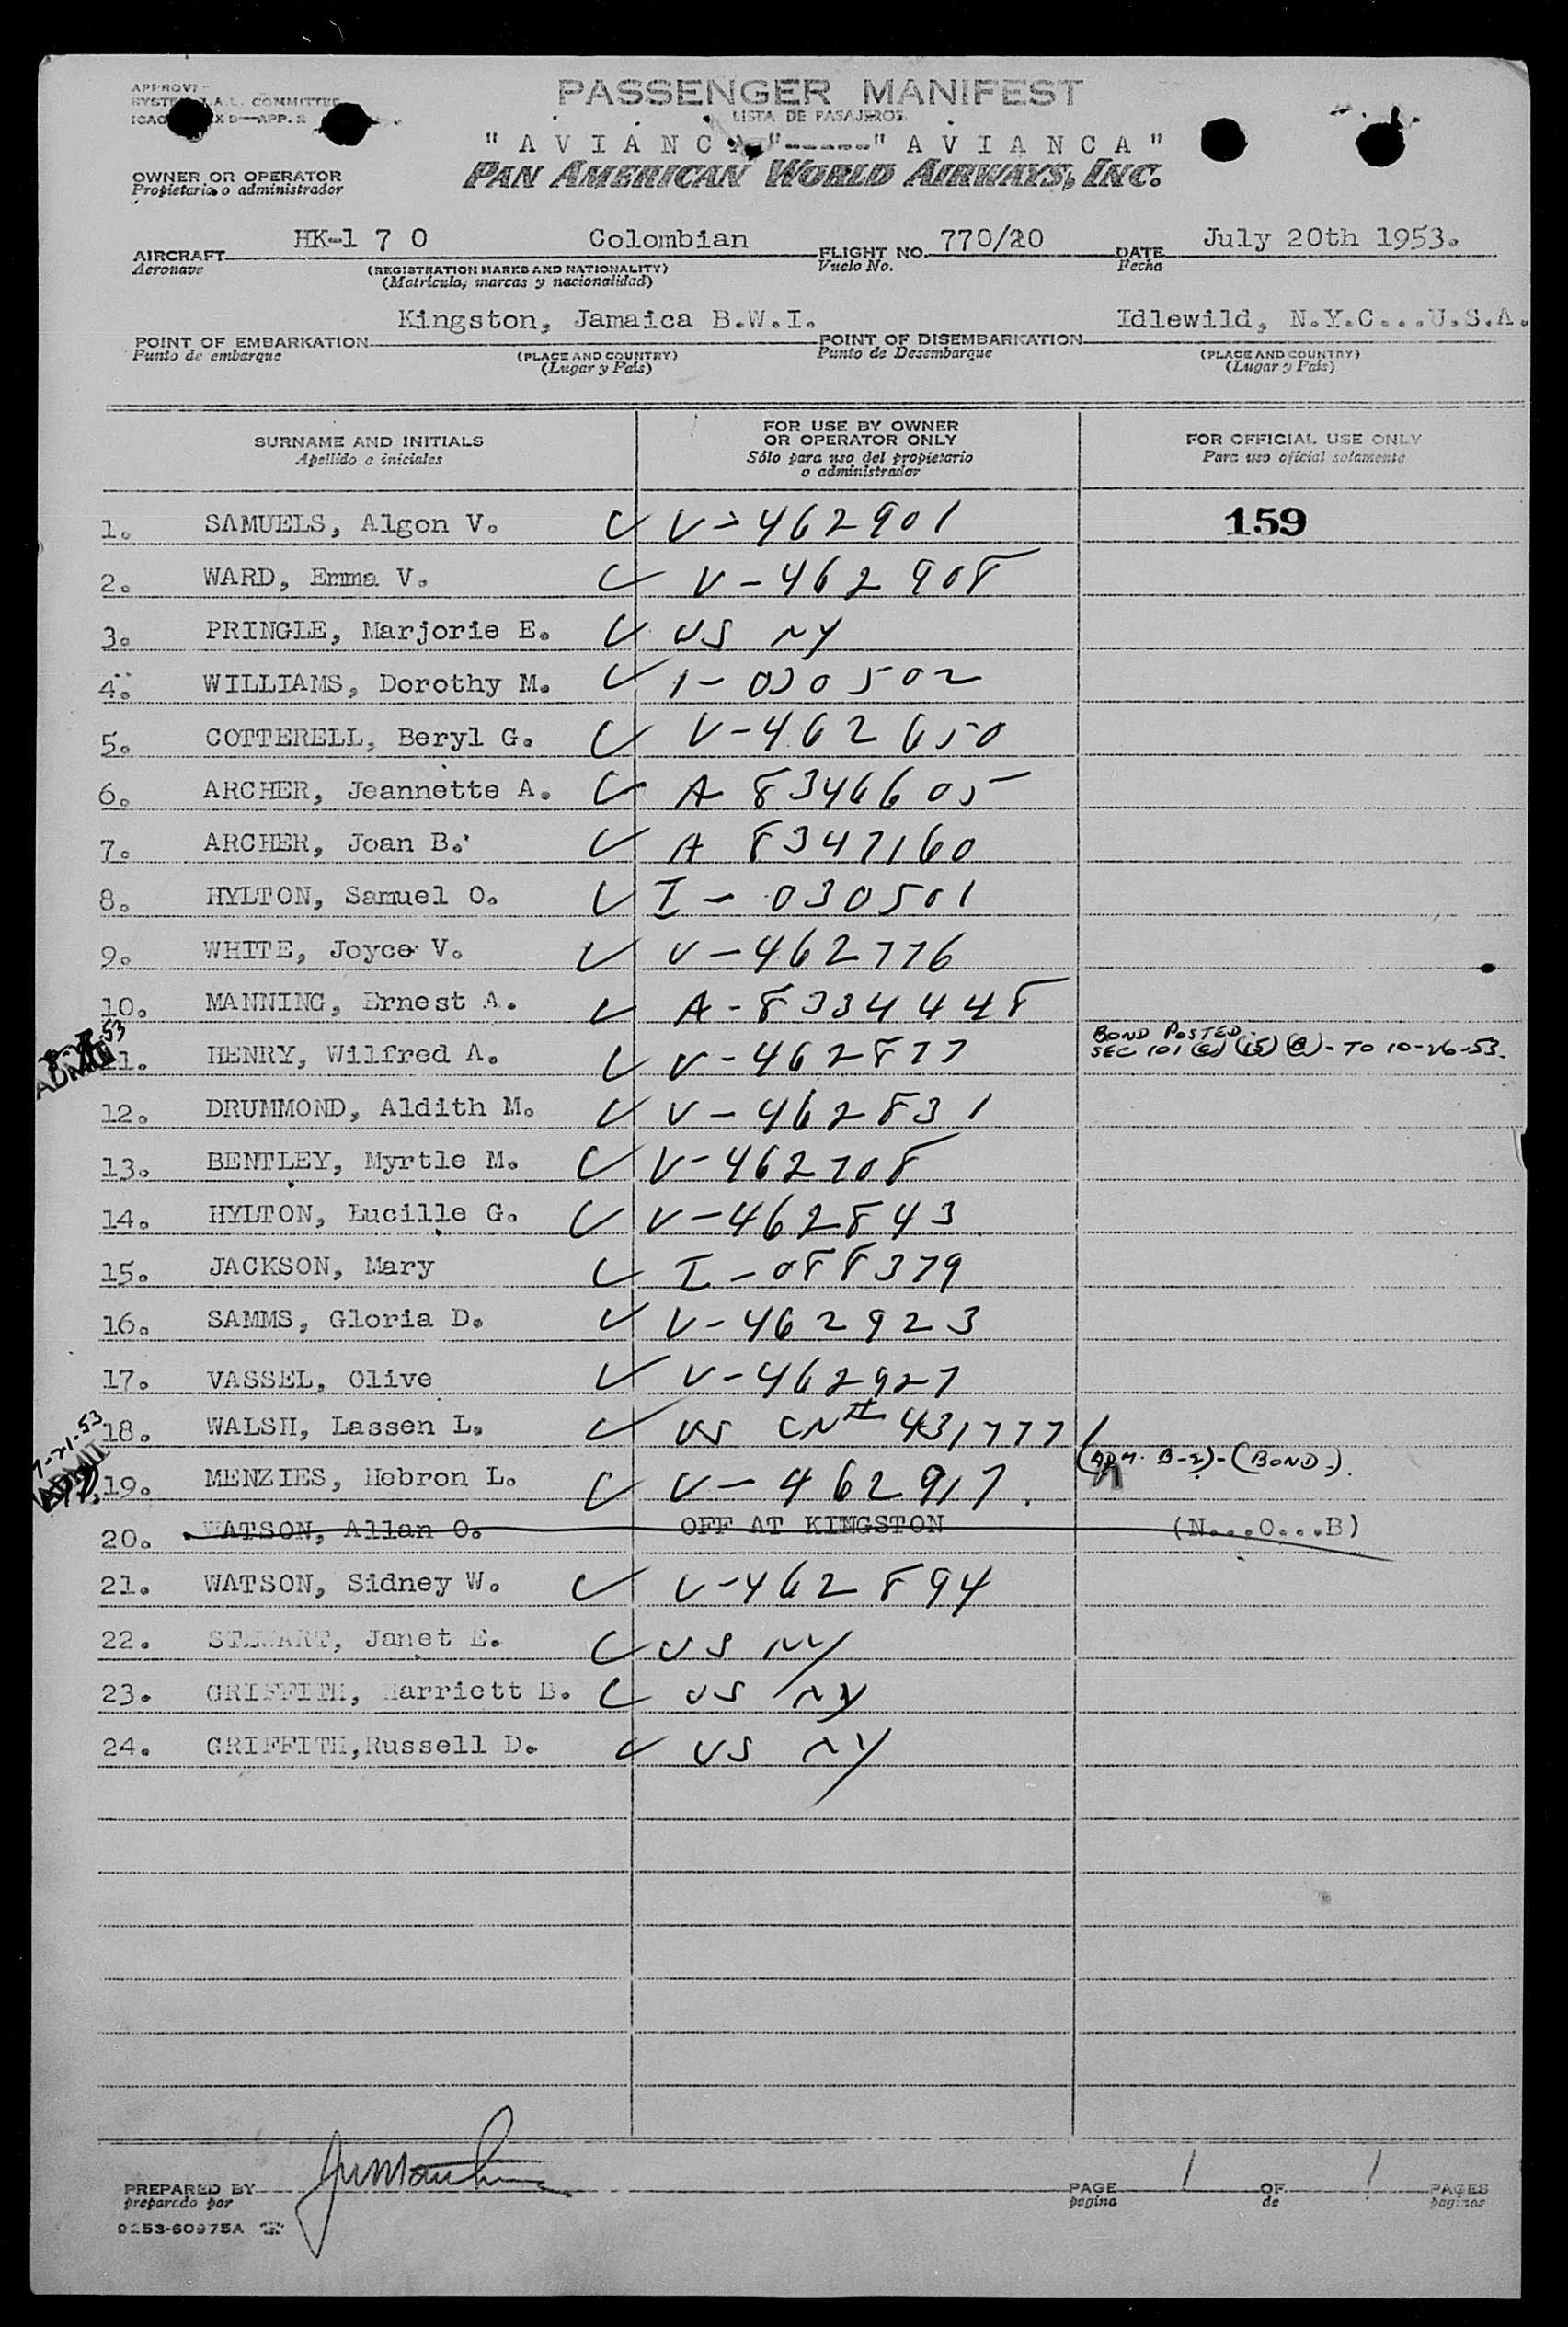 PASSENGER MANIFEST
LISTA DE PASAJEROS
"AVIANCA"-----"AVIANCA"
PAN AMERICAN WORLD AIRWAYS, INC.
OWNER OR OPERATOR
Propietario o administrador
AIRCRAFT HK-1 7 0 Colombian FLIGHT NO. 770/20 DATE July 20th 1953.
Aeronave (REGISTRATION MARKS AND NATIONALITY) Vuelo No. Fecha
(Matrícula, marcas y nacionalidad)
POINT OF EMBARKATION Kingston, Jamaica B.W.I. POINT OF DISEMBARKATION Idlewild, N.Y.C...U.S.A.
Punto de embarque (PLACE AND COUNTRY) Punto de Desembarque (PLACE AND COUNTRY)
(Lugar y País) (Lugar y País)
SURNAME AND INITIALS FOR USE BY OWNER OR OPERATOR ONLY FOR OFFICIAL USE ONLY
Apellido e iniciales Sólo para uso del propietario o administrador Para uso oficial solamente
1. SAMUELS, Algon V. V-462901 159
2. WARD, Emma V. V-462908
3. PRINGLE, Marjorie E. US NY
4. WILLIAMS, Dorothy M. I-030502
5. COTTERELL, Beryl G. V-462650
6. ARCHER, Jeannette A. A 8346605
7. ARCHER, Joan B. A 8347160
8. HYLTON, Samuel O. I-030501
9. WHITE, Joyce V. V-462776
10. MANNING, Ernest A. A-8334448
11. HENRY, Wilfred A. V-462877 BOND POSTED. SEC 101 (a) (15) (B) - TO 10-26-53.
12. DRUMMOND, Aldith M. V-462831
13. BENTLEY, Myrtle M. V-462708
14. HYLTON, Lucille G. V-462843
15. JACKSON, Mary I-088379
16. SAMMS, Gloria D. V-462923
17. VASSEL, Olive V-462927
18. WALSH, Lassen L. US CN# 431777
7-21-53 ADMIT
19. MENZIES, Hebron L. V-462917. (ADM. B-2)-(BOND-).
20. WATSON, Allan O. OFF AT KINGSTON (N...O...B)
21. WATSON, Sidney W. V-462894
22. STEWART, Janet E. US NY
23. GRIFFITH, Harriett B. US NY
24. GRIFFITH,Russell D. US NY
PREPARED BY PAGE 1 OF 1 PAGES
preparado por pagina de paginas
9253-60975A